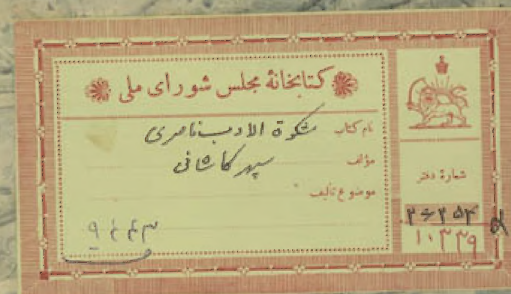 کتابخانهٔ مجلس شورای ملی
نام کتاب مشکوة الادب ناصری
مؤلف سپهر کاشانی
موضوع تألیف
شمارهٔ دفتر
۱۰۳۳۹